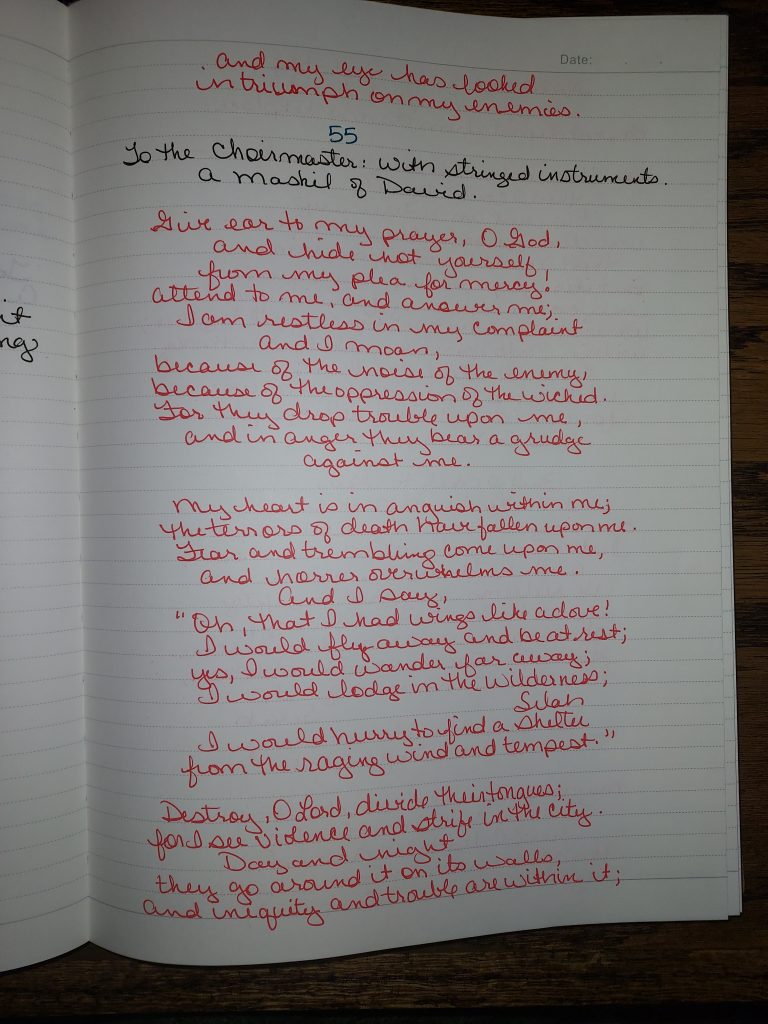 Date:
and my eye has looked
in triumph on my enemies.
55
To the Choirmaster: with stringed instruments.
a maskil of David.
Give ear to my prayer, O God,
and hide not yourself
from my plea for mercy!
attend to me, and answer me;
I am restless in my complaint
and I moan,
because of the noise of the enemy,
because of the oppression of the wicked.
For they drop trouble upon me,
and in anger they bear a grudge
against me.
My heart is in anguish within me;
the terrors of death have fallen upon me.
Fear and trembling come upon me,
and horror overwhelms me.
And I say,
"Oh, that I had wings like a dove!
I would fly away and be at rest;
yes, I would wander far away;
I would lodge in the wilderness;
Selah
I would hurry to find a shelter
from the raging wind and tempest."
Destroy, O Lord, divide their tongues;
for I see violence and strife in the city.
Day and night
they go around it on its walls,
and iniquity and trouble are within it;
it
ng